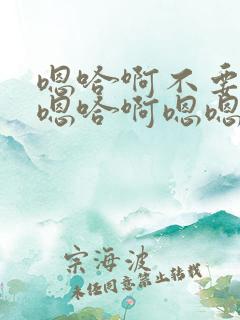 嗯哈啊不要
嗯哈啊嗯嗯
宗海波
未经同意禁止转载